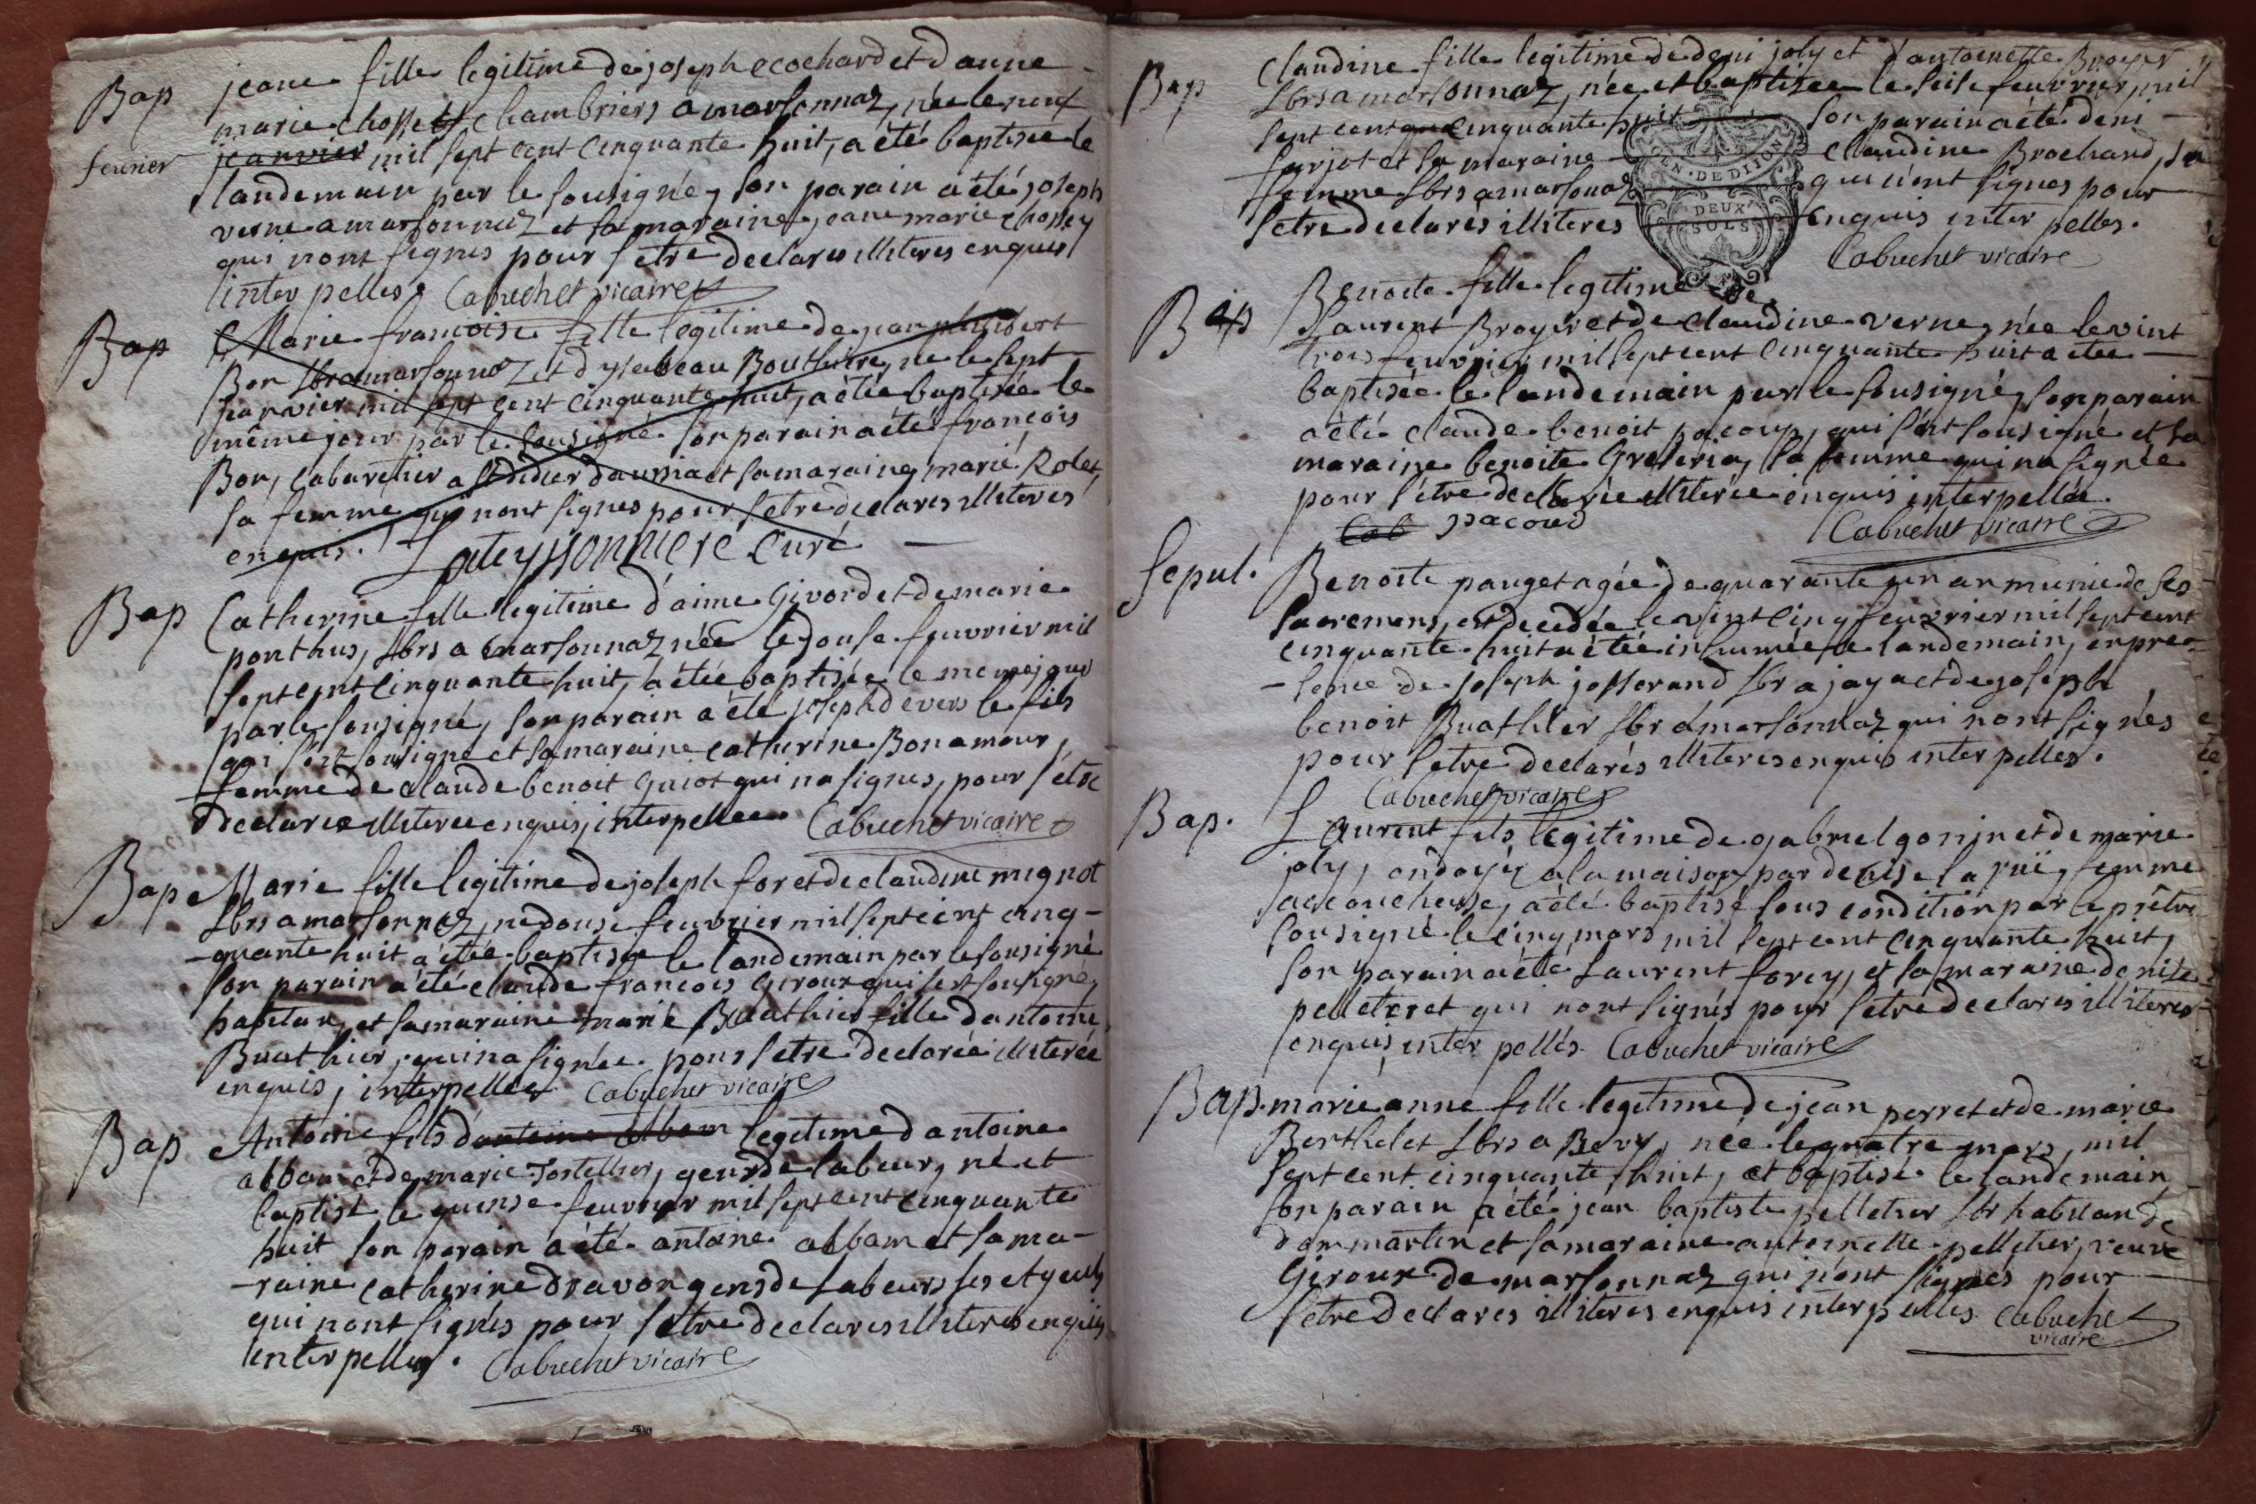 Bap
jeane fille legitime de joseph ecochard et d'anne
marie chossel chambriers a marsonnaz, née le neuf
fevrier
janvier mil sept cent cinquante huit, a été baptisée le
landemain par le sousigné, son parain a été joseph
verne a marsonnaz et sa maraine jeane marie chossey
qui nont signes pour setre declares illiteres enquis
interpelles. Cabuchet vicaire
Bap
Marie francoise fille legitime de jean philibert
Bon lbr a marsonnaz et d'ysabeau Bouthier, ne le sept
janvier mil sept cent cinquante huit, a étée baptisée le
même jour par le sousigné son parain a été francois
Bon, cabaretier a st didier daussia et sa maraine marie Rolet,
sa femme qui nont signes pour setre declares illiteres
enquis. Lateyssonniere curé
Bap
Catherine fille legitime d'aime Givord et de marie
ponthus, lbrs a marsonnaz née le douse feuvrier mil
sept cent cinquante huit, a étée baptisée le meme jour
par le sousigné, son parain a été joseph devers le fils
qui sest sousigné et sa maraine catherine Bonamour,
femme de claude benoit Guiot qui na signes, pour s'étre
declarée illiteree enquis, interpellee. Cabuchet vicaire
Bap
Marie fille legitime de joseph for et de claudine mignot
lbrs a marsonnaz, ne douse feuvrier mil sept cent cinq-
-quante huit a étée baptisée le landemain par le sousigné
son parain a été claude francois Giroux qui sest sousigné,
habitan, et sa maraine marie Buathier fille d'antoine
Buathier, qui na signée pour setre declarée illiterée
enquis, interpellee Cabuchet vicaire
Bap
Antoine fils d'antoine albam legitime d'antoine
albam et de marie Tortellier, gens de labeur, né et
baptist le quinse feuvrier mil sept cent cinquante
huit son parain a été antoine albam et sa ma-
-raine catherine dravon gens de labeurs ses etyeuls
qui nont signés pour setre declares illiteres enquis
interpelles. Cabuchet vicaire
Bap
Claudine fille legitime de deni joly et d'antoinette Broyer
lbrs a marsonnaz, née et baptisée le seise feuvrier, mil
sept cent cinquante huit son parain a été deni
farjot et sa maraine claudine Brochand, sa
femme lbrs a marsonaz qui n'ont signes pour
setre declares illiteres enquis interpelles.
GEN. DE DIJON
DEUX
SOLS
Cabuchet vicaire
Bap
Benoite fille legitime de
Laurent Broyer et de claudine verne, née le vint
trois feuvrier mil sept cent cinquante huit a étée
baptisée le landemain par le sousigné, son parain
a été claude benoit pacoud, qui sest sousigné et sa
maraine benoite Greferia, sa femme qui na signée
pour s'étre declarée illiterée enquis interpellée.
Cab pacoud Cabuchet vicaire
Sepul.
Benoite panget agée de quarante un an munie de ses
sacremens, est decedée le vint cinq feuvrier mil sept cent
cinquante huit a étée inhumée le landemain, en pre-
-sence de joseph josserand lbr a jayat et de joseph
benoit Buathier lbr a marsonnaz qui nont signés
pour setre declarés illiteres enquis interpelles.
Cabuchet vicaire
Bap.
Laurent fils legitime de gabriel gonin et de marie
joly, ondoyé a la maison par denise la rue, femme
accoucheuse, a été baptisé sous condition par le prêtre
sousigné le cinq mars mil sept cent cinquante huit,
son parain a été Laurent forey, et sa maraine denise
pelletret qui nont signés pour setre declares illiteres
enquis, interpellés. Cabuchet vicaire
Bap.
marie anne fille legitime de jean perret et de marie
Berthelet lbrs a Bevy, née le quatre mars, mil
sept cent cinquante huit, et baptisé le landemain
son parain a été jean baptiste pelletier lbr habitan de
dommartin et sa maraine antoinette pelletier, veuve
Giroux de marsonnaz qui nont signes pour
setre declares illiteres enquis interpelles Cabuchet
vicaire